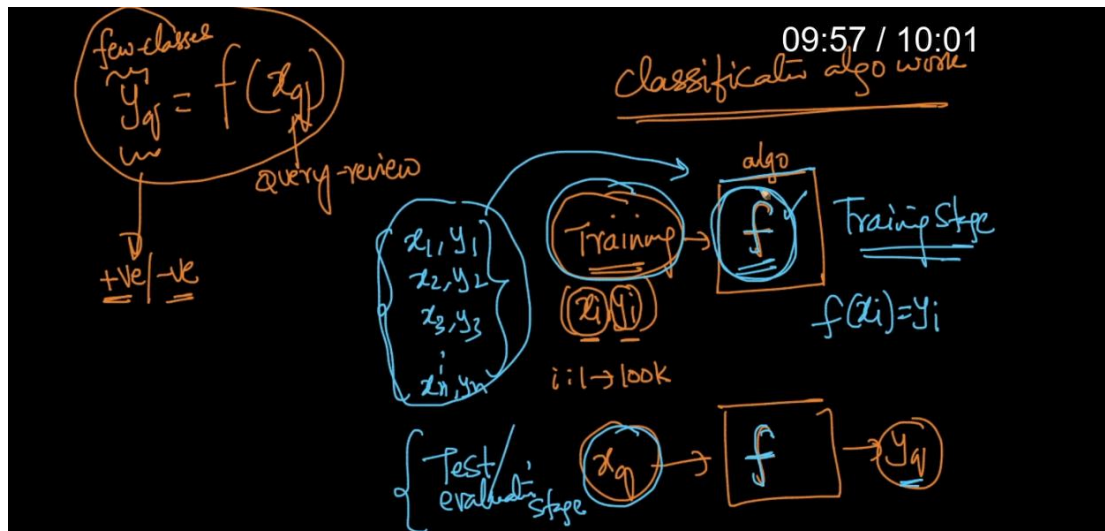 few-classes
yq = f(xq)
query-review
+ve/-ve
09:57 / 10:01
Classificatin algo work
algo
x1, y1
x2, y2
x3, y3
xn, yn
Training → f
Training Stage
(xi, yi)
f(xi)=yi
i:1→100K
Test/
evaluation
stage
xq → f → yq